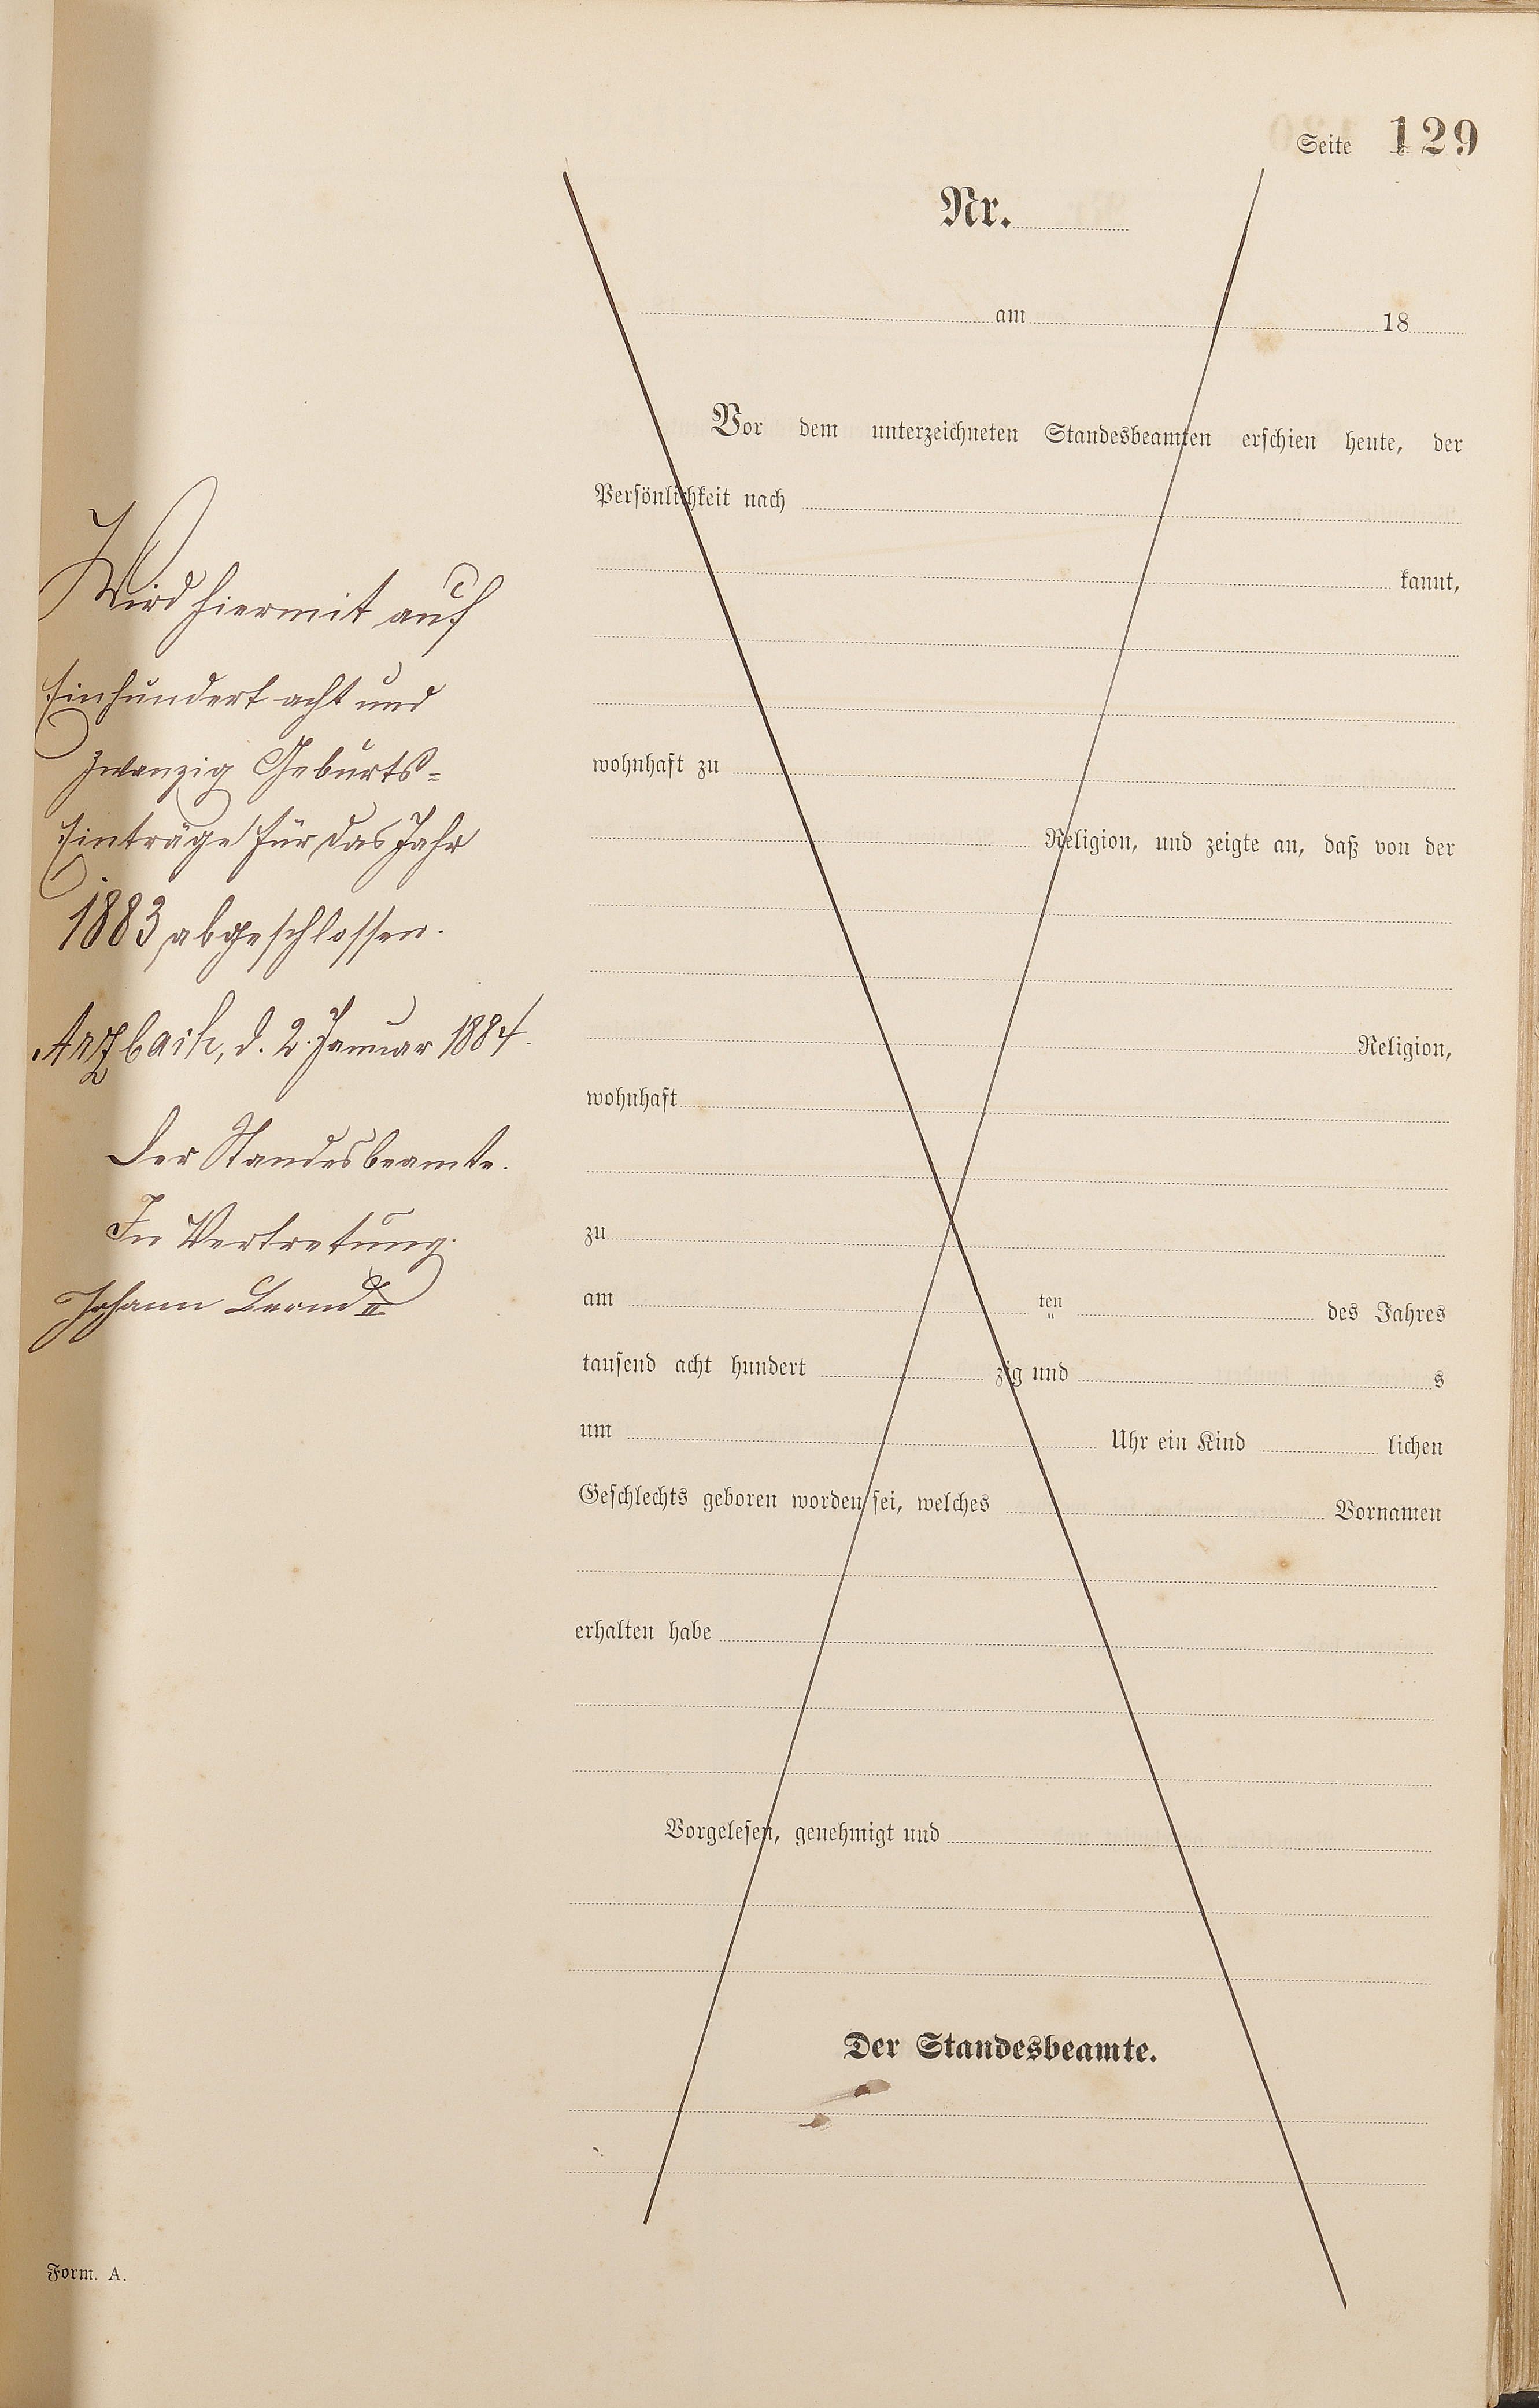 Seite 129
Nr.
am 18
Vor dem unterzeichneten Standesbeamten erschien heute, der
Persönlichkeit nach
kannt,
wohnhaft zu
Religion, und zeigte an, daß von der
Religion,
wohnhaft
zu
am ten des Jahres
tausend acht hundert zig und s
um Uhr ein Kind lichen
Geschlechts geboren worden sei, welches Vornamen
erhalten habe
Vorgelesen, genehmigt und
Der Standesbeamte.
Wird hiermit auf
Einhundert acht und
zwanzig Geburts-
Einträge für das Jahr
1883 abgeschlossen.
Arzbach, d. 2. Januar 1884.
Der Standesbeamte.
In Vertretung.
Johann
Form. A.